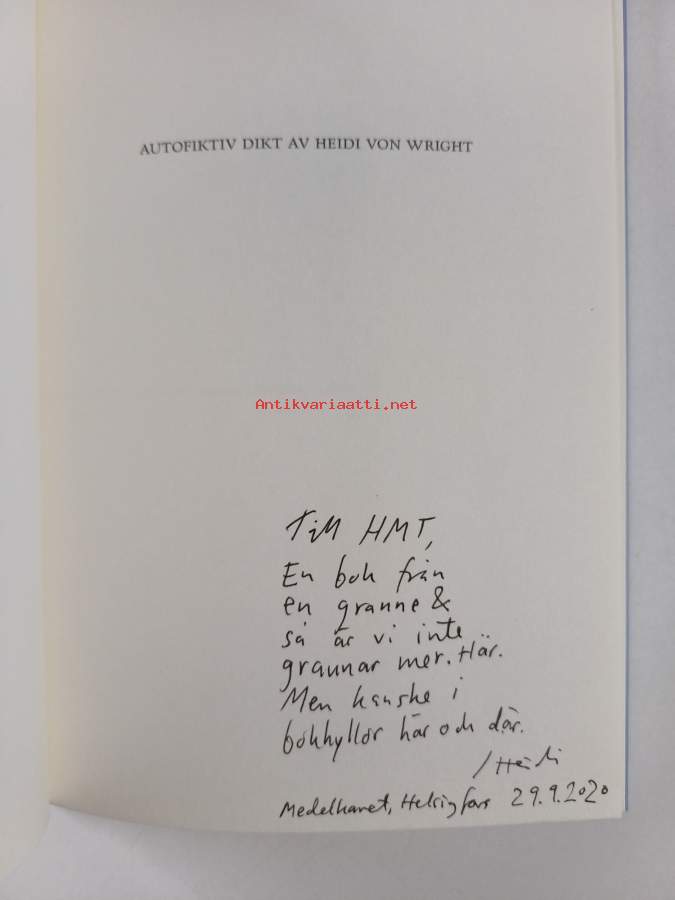 AUTOFIKTIV DIKT AV HEIDI VON WRIGHT
Antikvariaatti.net
Till HMT,
En bok från
en granne &
så är vi inte
grannar mer. Här.
Men kanske i
bokhyllor här och där.
/Heidi
Medelhavet, Helsingfors 29.9.2020